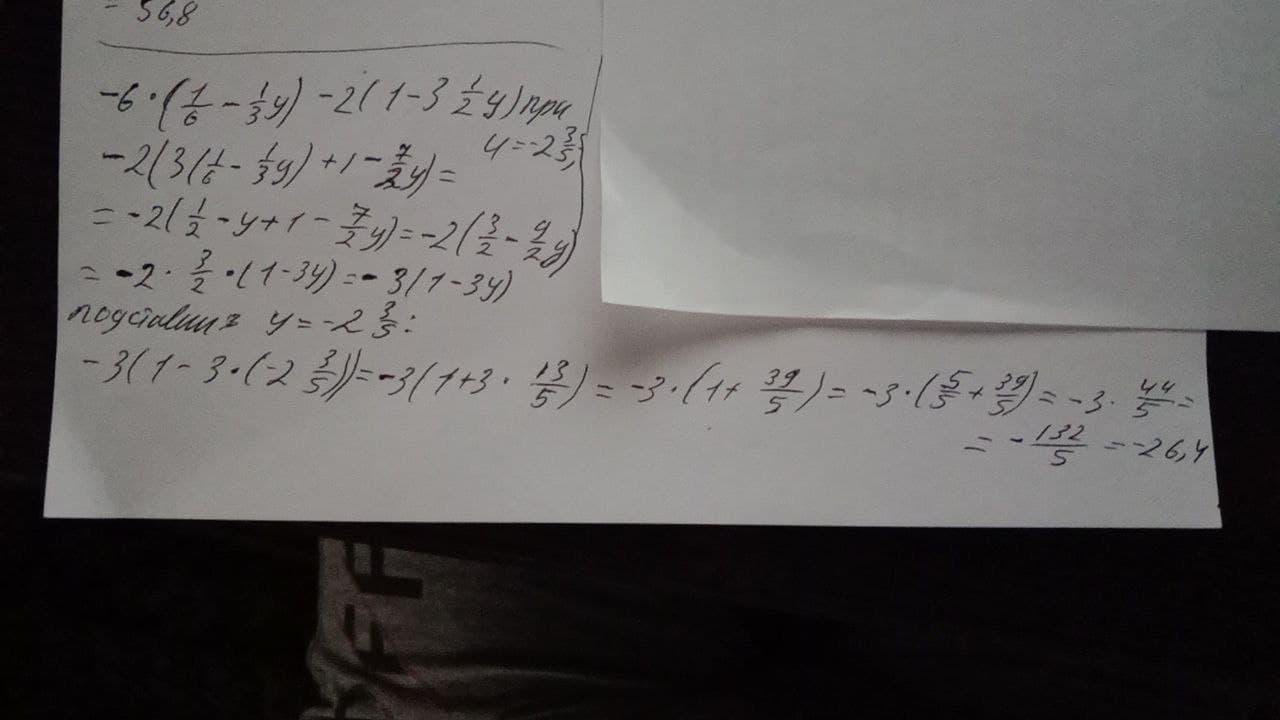 = 56,8
-6·(1/6 - 1/3y) -2(1-3 1/2y) при
y=-2 3/5;
-2(3(1/6 - 1/3y) +1 - 7/2y)=
= -2(1/2 -y+1- 7/2y)=-2(3/2 - 9/2y)
= -2· 3/2 ·(1-3y)=-3(1-3y)
подставим y=-2 3/5:
-3(1-3·(-2 3/5))=-3(1+3· 13/5) = -3·(1+ 39/5)= -3·(5/5 + 39/5)= -3· 44/5 =
= - 132/5 = -26,4